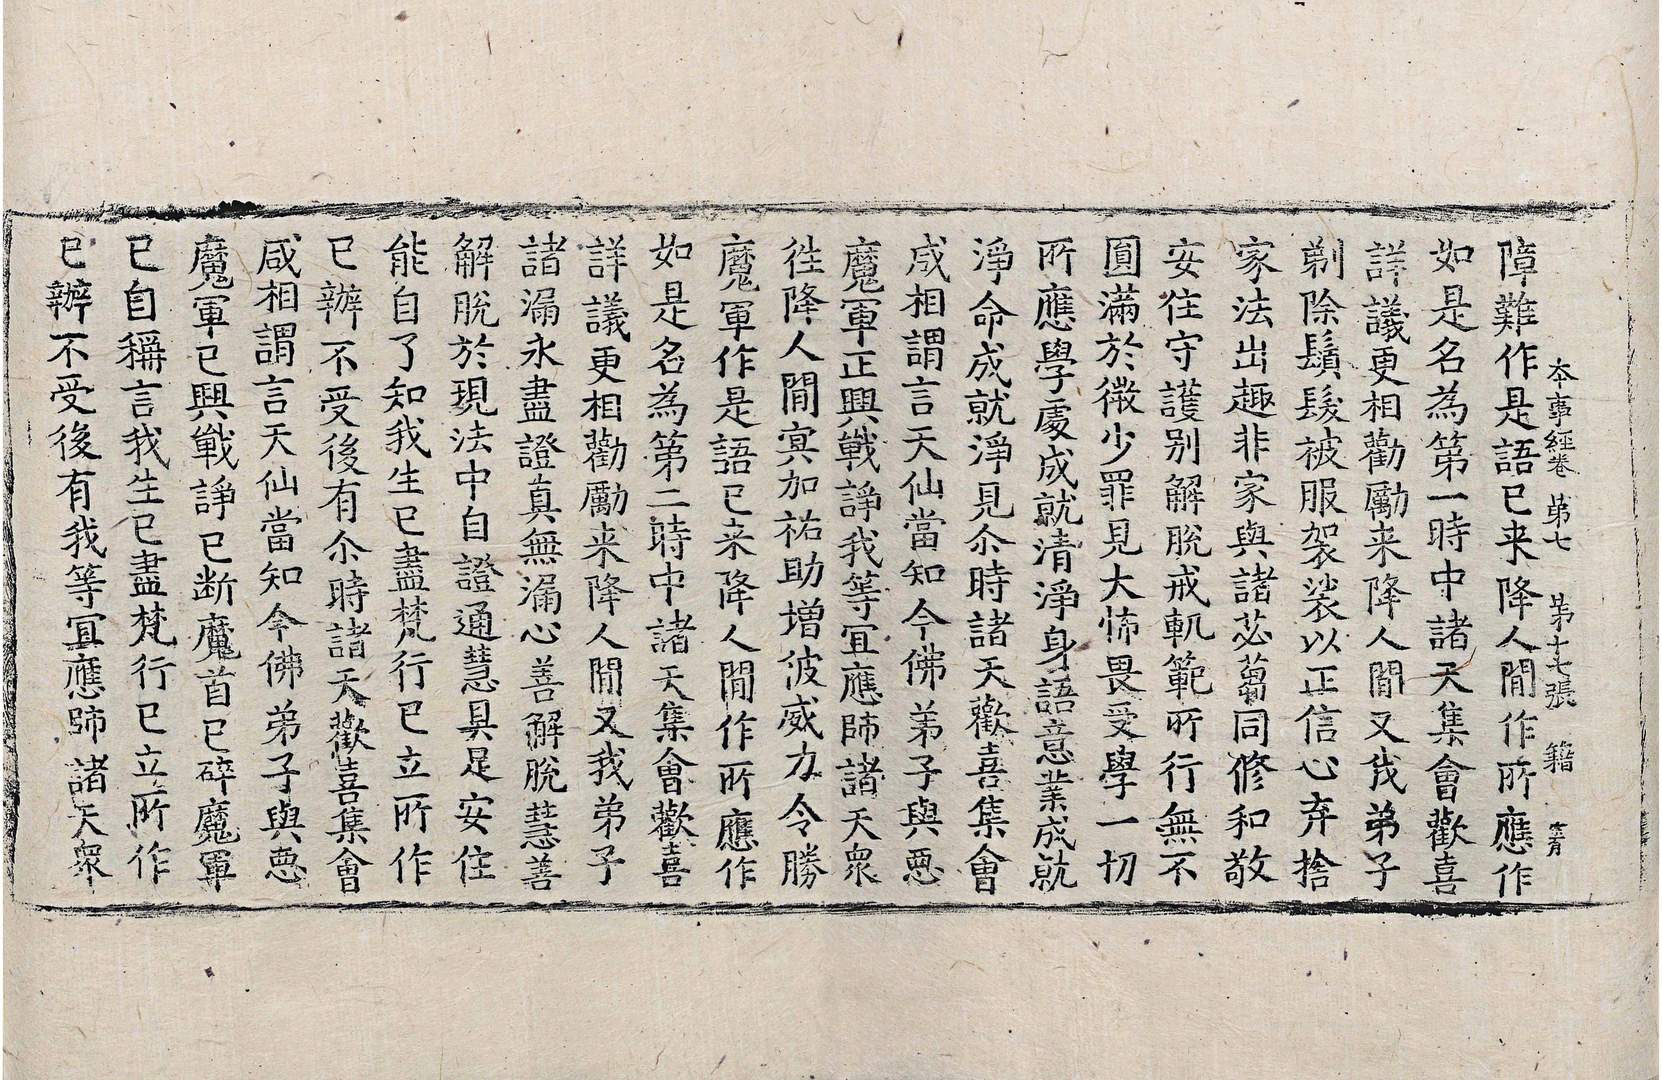 本事經卷 第七 第十七張 籍
障難作是語已来降人閒作所應作
如是名為第一時中諸天集會歡喜
詳議更相勸勵来降人閒又我弟子
剃除鬚髮被服袈裟以正信心弃捨
家法出趣非家與諸苾蒭同修和敬
安住守護别解脫戒軌範所行無不
圓滿於微少罪見大怖畏受學一切
所應學處成就清淨身語意業成就
淨命成就淨見尒時諸天歡喜集會
咸相謂言天仙當知今佛弟子與惡
魔軍正興戰諍我等宜應師諸天衆
徃降人閒冥加祐助增彼威力令勝
魔軍作是語已来降人閒作所應作
如是名為第二時中諸天集會歡喜
詳議更相勸勵来降人閒又我弟子
諸漏永盡證真無漏心善解脫慧善
解脫於現法中自證通慧具足安住
能自了知我生已盡梵行已立所作
已辦不受後有尒時諸天歡喜集會
咸相謂言天仙當知今佛弟子與惡
魔軍已興戰諍已断魔首已碎魔軍
已自稱言我生已盡梵行已立所作
已辦不受後有我等宜應師諸天衆